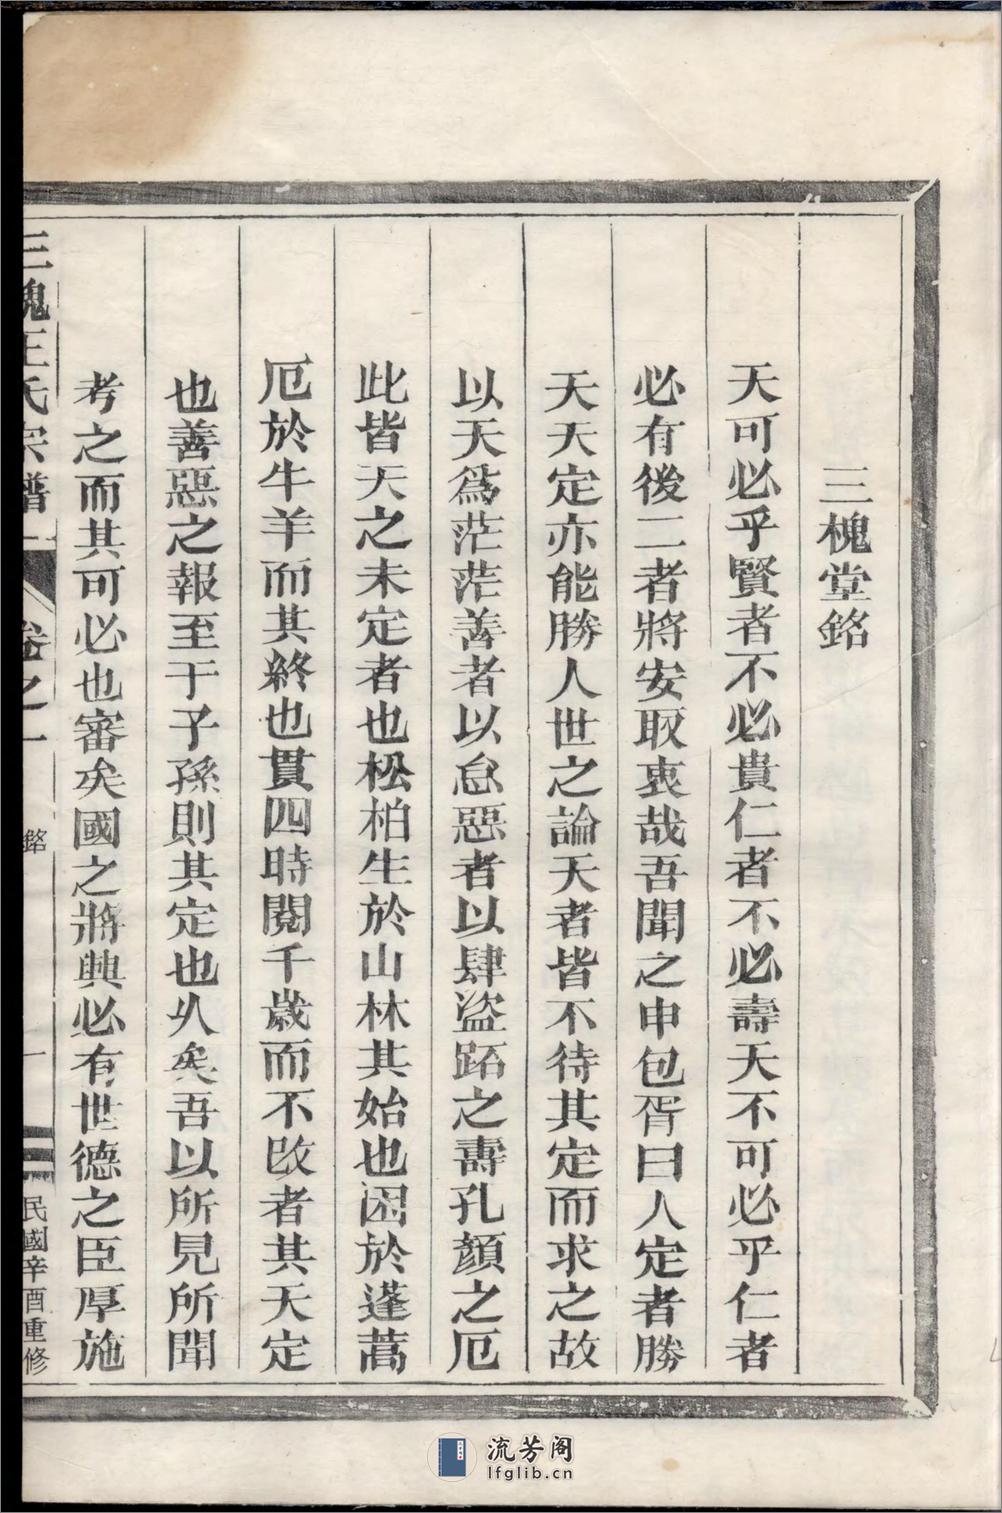 三槐堂銘
天可必乎賢者不必貴仁者不必壽天不可必乎仁者
必有後二者將安取衷哉吾聞之申包胥曰人定者勝
天天定亦能勝人世之論天者皆不待其定而求之故
以天為茫茫善者以怠惡者以肆盜跖之壽孔顏之厄
此皆天之未定者也松柏生於山林其始也困於蓬蒿
厄於牛羊而其終也貫四時閱千歲而不改者其天定
也善惡之報至于子孫則其定也乆矣吾以所見所聞
考之而其可必也審矣國之將興必有世德之臣厚施
三槐王氏宗譜 卷之一 銘 一 民國辛酉重修
流芳阁
lfglib.cn